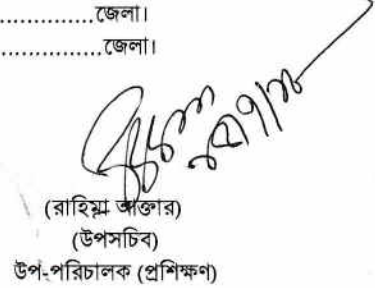 ..............জেলা।
................জেলা।
(রাহিমা আক্তার)
(উপসচিব)
উপ-পরিচালক (প্রশিক্ষণ)